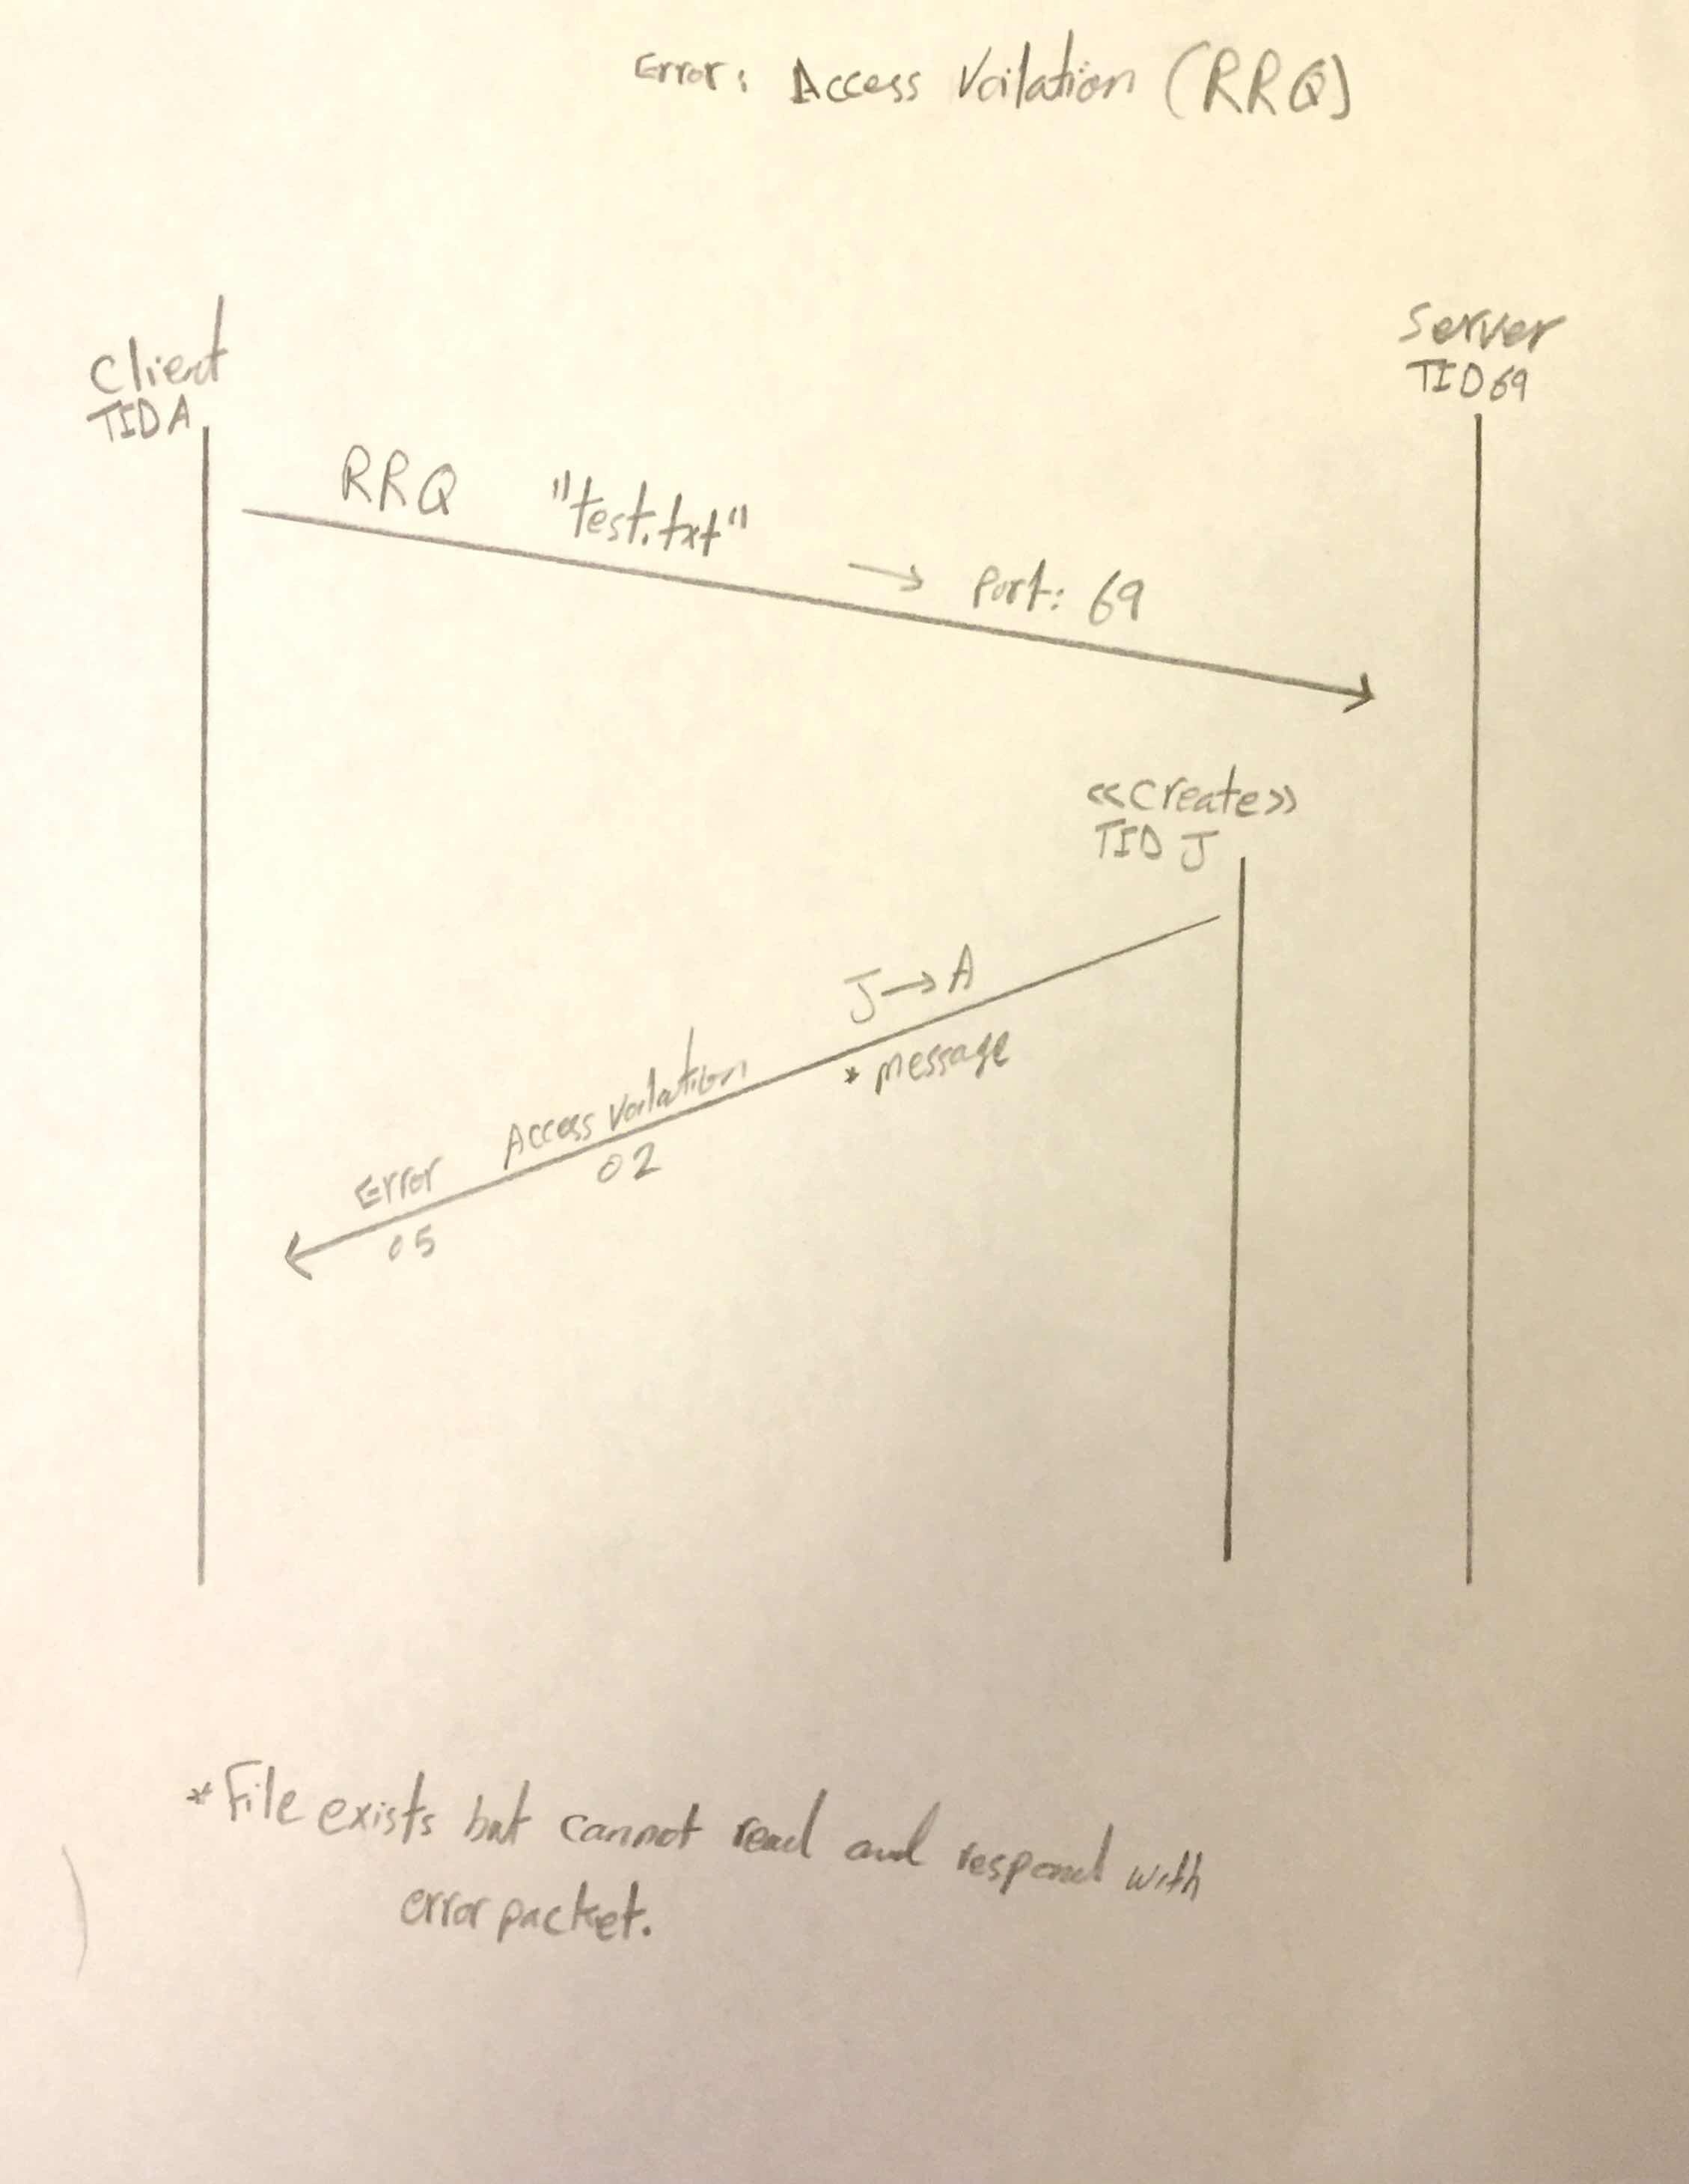 Error: Access Voilation (RRQ)
Client
TID A
Server
TID 69
RRQ "test.txt" → Port: 69
<<create>>
TID J
J→A
* message
Access Voilation
02
Error
05
*File exists but cannot read and respond with
error packet.